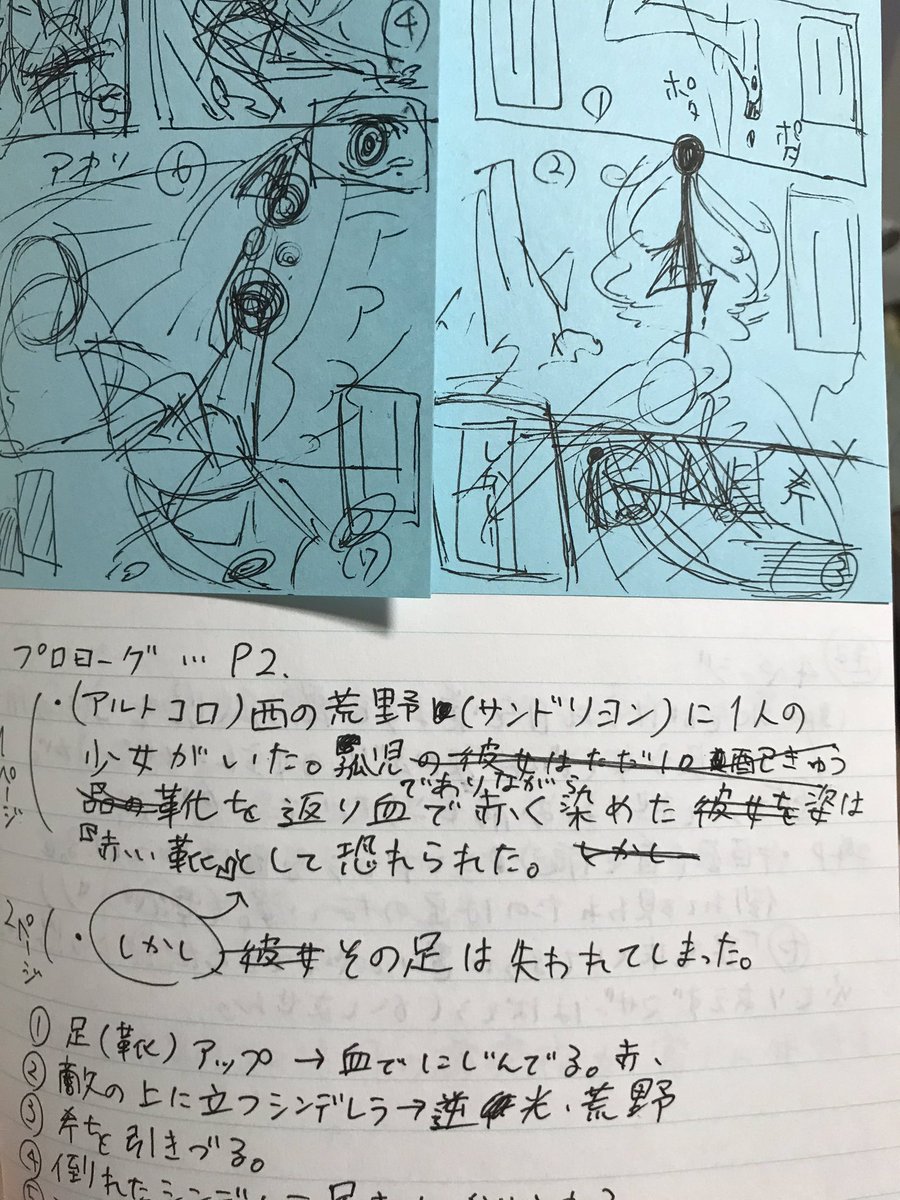 ④
⑤
①
ポタ
ポタ
アオリ
⑥
②
斧
③
⑦
プロローグ … P2.
1ページ
・(アルトコロ)西の荒野(サンドリヨン)に1人の
少女がいた。孤児の彼女はただ1つ
でありながら
靴を返り血で赤く染めた彼女を姿は
『赤い靴』として恐れられた。しかし
2ページ
・しかし 彼女 その足は失われてしまった。
① 足(靴)アップ→血でにじんでる。赤、
② 敵の上に立つシンデレラ→逆光、荒野
③ 斧を引きづる。
④ 倒れたシンデレラ